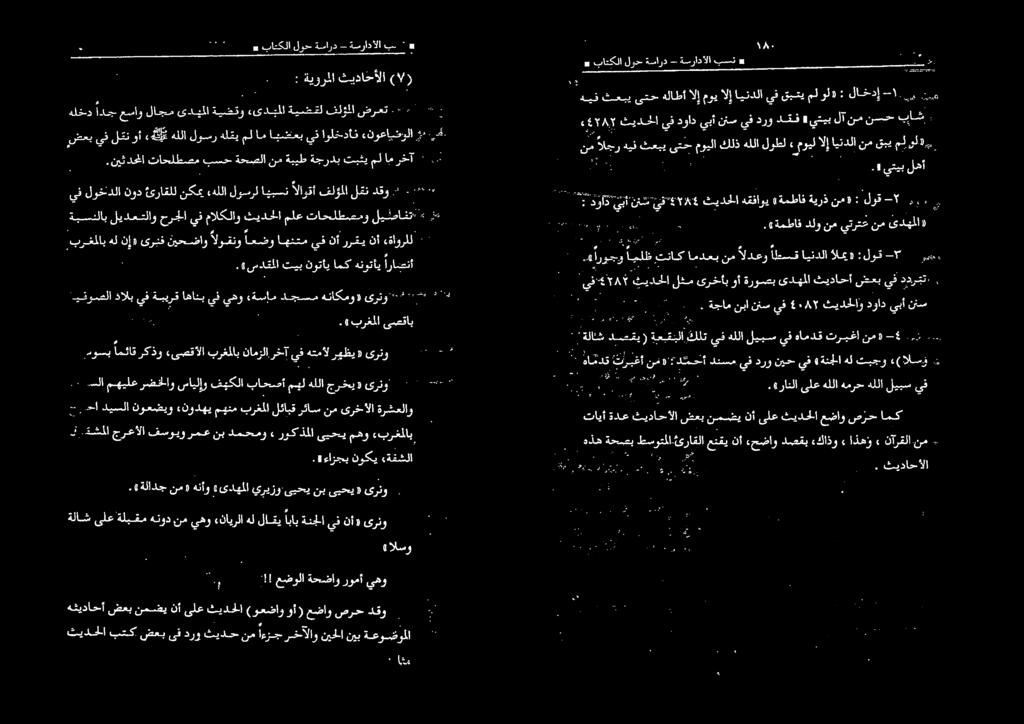 ■ نسب الأدارسة – دراسة حول الكتاب ■
(٧) الأحاديث المروية :
تعرض المؤلف لقضية المهدى، وقضية المهدى مجال واسع جداً دخله
الوضاعون، فأدخلوا في بعضها ما لم يقله رسول الله ﷺ، أو نقل في بعض
آخر ما لم يثبت بدرجة طيبة من الصحة حسب مصطلحات المحدثين.
وقد نقل المؤلف أقوالاً نسبها لرسول الله، يمكن للقارئ دون الدخول في
تفاصيل ومصطلحات علم الحديث والكلام في الجرح والتعديل بالنسبة
للرواة، أن يقرر أن في متنها وضعاً ونقولاً واضحين فنرى «إن له بالمغرب
أنصاراً يأتونه كما يأتون بيت المقدس».
ونرى «ومكانه مسجد ماسة، وهي في بناها قريبة في بلاد الصوفية
باقصى المغرب».
ونرى «يظهر لأمته في آخر الزمان بالمغرب الأقصى، وذكر قائماً بسوس
ونرى «يخرج الله لهم أصحاب الكهف وإلياس والخضر عليهم
والعشرة الأخرى من سائر قبائل المغرب منهم يهدون، ويضعون السيد
بالمغرب، وهم يحيى المذكور ، ومحمد بن عمر ويوسف الأعرج
الشفة، يكون بجزاء».
ونرى «يحيى بن يحيى وزيري المهدى» وأنه «من جدالة».
ونرى «أن في الجنة باباً يقال له الريان، وهي من دونه مقبلة على شالة
وسلا»
وهي أمور واضحة الوضع !!
وقد حرص واضع (أو واضعو) الحديث على أن يضمن بعض أحاديثه
الموضوعة بين الحين والآخر جزءاً من حديث ورد فى بعض كتب الحديث
مثل
١٨٠
■ نسب الأدارسة – دراسة حول الكتاب ■
١– إدخال : «لو لم يتبق في الدنيا إلا يوم إلا أطاله حتى يبعث فيه
شاب حسن من آل بيتي» فقد ورد في سنن أبي داود في الحديث ٤٢٨٢،
«لو لم يبق من الدنيا إلا ليوم ، لطول الله ذلك اليوم حتى يبعث فيه رجلاً من
أهل بيتي».
٢– قول : «من ذرية فاطمة» يوافقه الحديث ٤٢٨٤ في سنن أبي داود :
«المهدى من عترتي من ولد فاطمة».
٣– قول : «يملأ الدنيا قسطاً وعدلاً من بعدما كانت ظلماً وجوراً».
تتردد في بعض أحاديث المهدى بصورة أو بأخرى مثل الحديث ٤٢٨٢ في
سنن أبي داود والحديث ٤٠٨٢ في سنن ابن ماجة .
٤– «من اغبرت قدماه في سبيل الله في تلك البقعة (يقصد شالة
وسلا)، وجبت له الجنة» في حين ورد في مسند أحمد: «من أغبرت قدماه
في سبيل الله حرمه الله على النار».
كما حرص واضع الحديث على أن يضمن بعض الأحاديث عدة أيات
من القرآن ، وهذا ، وذاك، بقصد واضح، أن يقنع القارئ المتوسط بصحة هذه
الأحاديث .